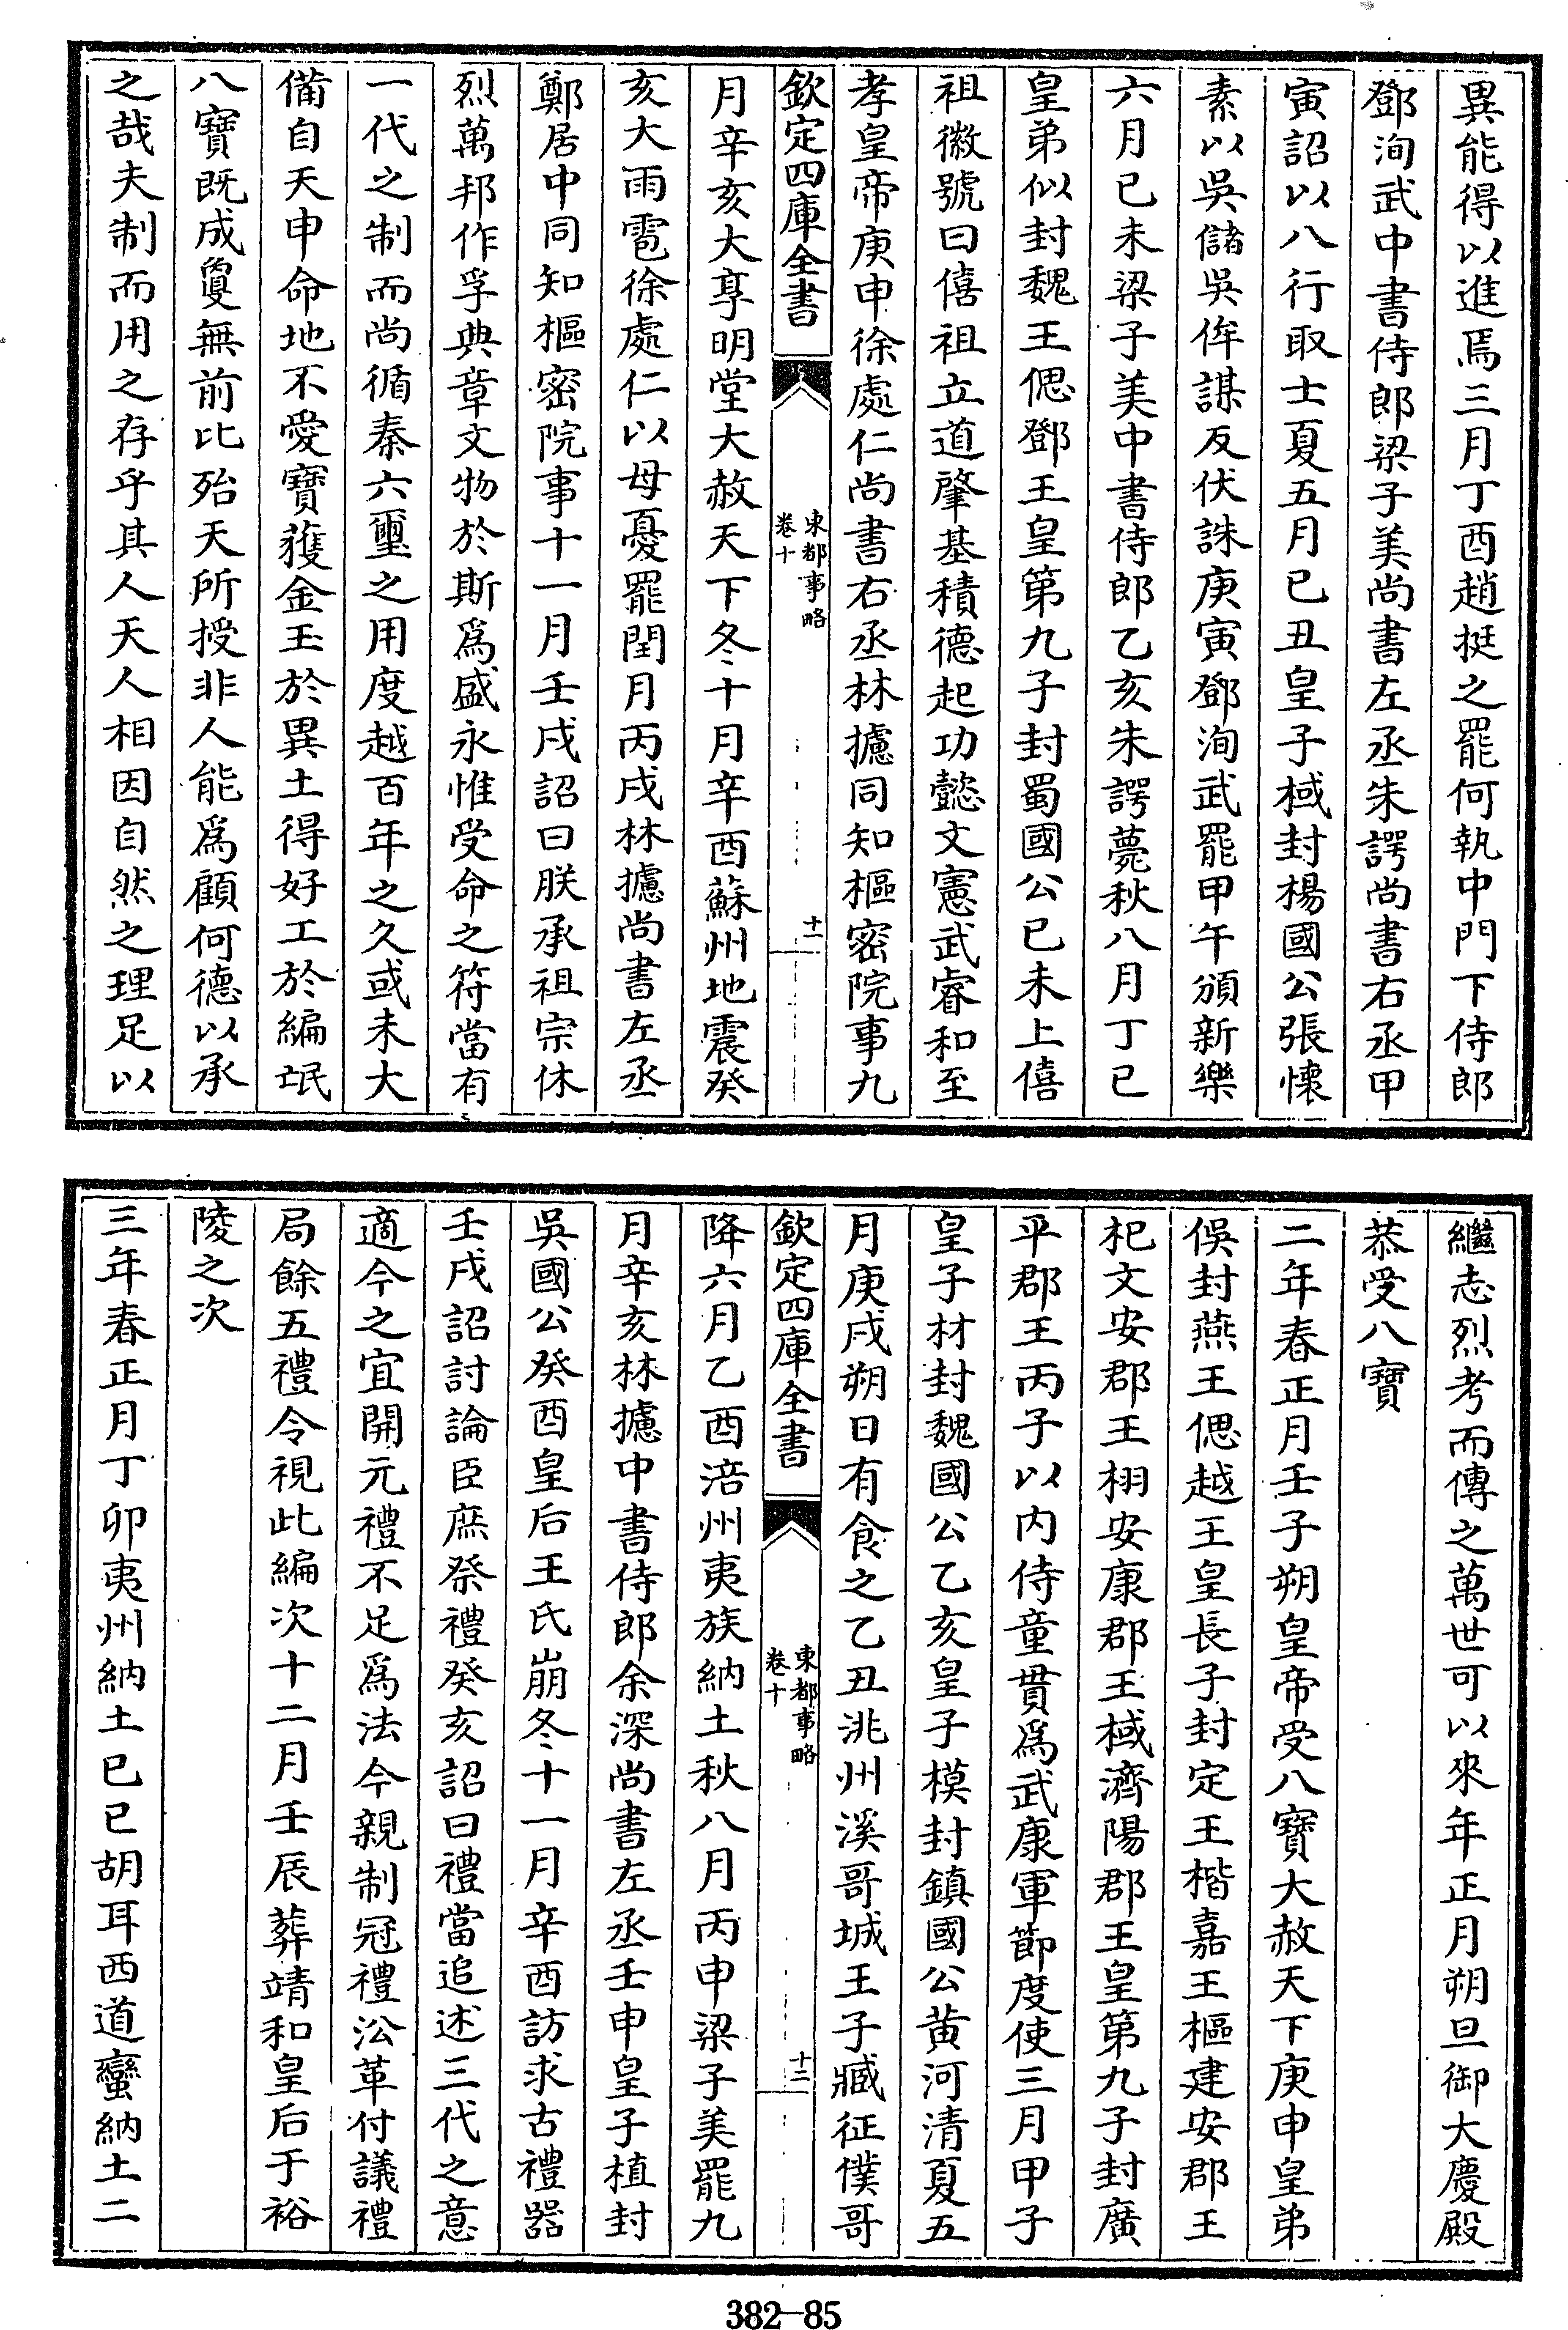 異能得以進焉三月丁酉趙挺之罷何執中門下侍郎
鄧洵武中書侍郎梁子美尚書左丞朱諤尚書右丞甲
寅詔以八行取士夏五月己丑皇子棫封楊國公張懷
素以吳儲吳侔謀反伏誅庚寅鄧洵武罷甲午頒新樂
六月己未梁子美中書侍郎乙亥朱諤薨秋八月丁巳
皇弟似封魏王偲鄧王皇第九子封蜀國公己未上僖
祖徽號曰僖祖立道肇基積德起功懿文憲武睿和至
孝皇帝庚申徐處仁尚書右丞林攄同知樞密院事九
欽定四庫全書
東都事略
卷十
十一
月辛亥大享明堂大赦天下冬十月辛酉蘇州地震癸
亥大雨雹徐處仁以母憂罷閏月丙戌林攄尚書左丞
鄭居中同知樞密院事十一月壬戌詔曰朕承祖宗休
烈萬邦作孚典章文物於斯爲盛永惟受命之符當有
一代之制而尚循秦六璽之用度越百年之久或未大
備自天申命地不愛寶獲金玉於異土得好工於編氓
八寶既成敻無前比殆天所授非人能爲顧何德以承
之哉夫制而用之存乎其人天人相因自然之理足以
繼志烈考而傳之萬世可以來年正月朔旦御大慶殿
恭受八寶
二年春正月壬子朔皇帝受八寶大赦天下庚申皇弟
俁封燕王偲越王皇長子封定王楷嘉王樞建安郡王
杞文安郡王栩安康郡王棫濟陽郡王皇第九子封廣
平郡王丙子以内侍童貫爲武康軍節度使三月甲子
皇子材封魏國公乙亥皇子模封鎮國公黄河清夏五
月庚戌朔日有食之乙丑洮州溪哥城王子臧征僕哥
欽定四庫全書
東都事略
卷十
十二
降六月乙酉涪州夷族納土秋八月丙申梁子美罷九
月辛亥林攄中書侍郎余深尚書左丞壬申皇子植封
吳國公癸酉皇后王氏崩冬十一月辛酉訪求古禮器
壬戌詔討論臣庶祭禮癸亥詔曰禮當追述三代之意
適今之宜開元禮不足爲法今親制冠禮沿革付議禮
局餘五禮令視此編次十二月壬辰葬靖和皇后于裕
陵之次
三年春正月丁卯夷州納土己巳胡耳西道蠻納土二
382-85